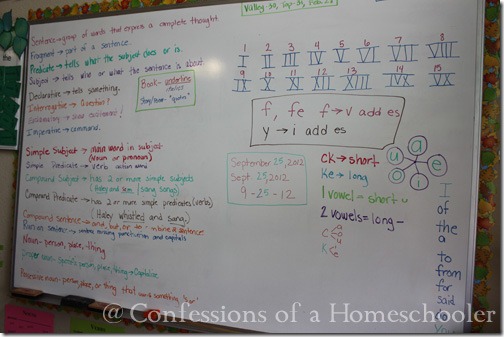 Valley-30,
Sentence→group of words that express a complete thought.
Fragment→part of a sentence.
Predicate→tells what the subject does or is.
Subject→tells who or what the sentence is about
Declarative→tells something.
Interrogative→Question?
Imperative→command.
Book-underline
Story/Song-"quotes"
Simple Subject→main word in subject
(noun or pronoun)
Simple Predicate→verb
Compound Subject→has 2 or more simple subjects
(Haley and Sam / sang songs)
Compound Predicate→has 2 or more simple predicates (verbs)
(Haley whistled and sang.)
Compound sentence→and, but, or, to
Run on Sentence→ missing punctuation and capitals
Noun-person, place, thing
Proper noun- person, place, thing→Capitalize
Possessive noun-person, place, or thing that
1 2 3 4 5 6 7 8
I II III IV V VI VII VIII
9 10 11 12 13 14 15
IX X XI XII XIII
f, fe f→v add es
y→i add es
September 25, 2012
Sept. 25, 2012
9-25-12
CK→short
Ke→long
1 vowel=short
2 vowels=long -
C a o u
K e i
a
e
i
o
u
I
of
the
a
to
from
for
said
do
you
@ Confessions of a Homeschooler